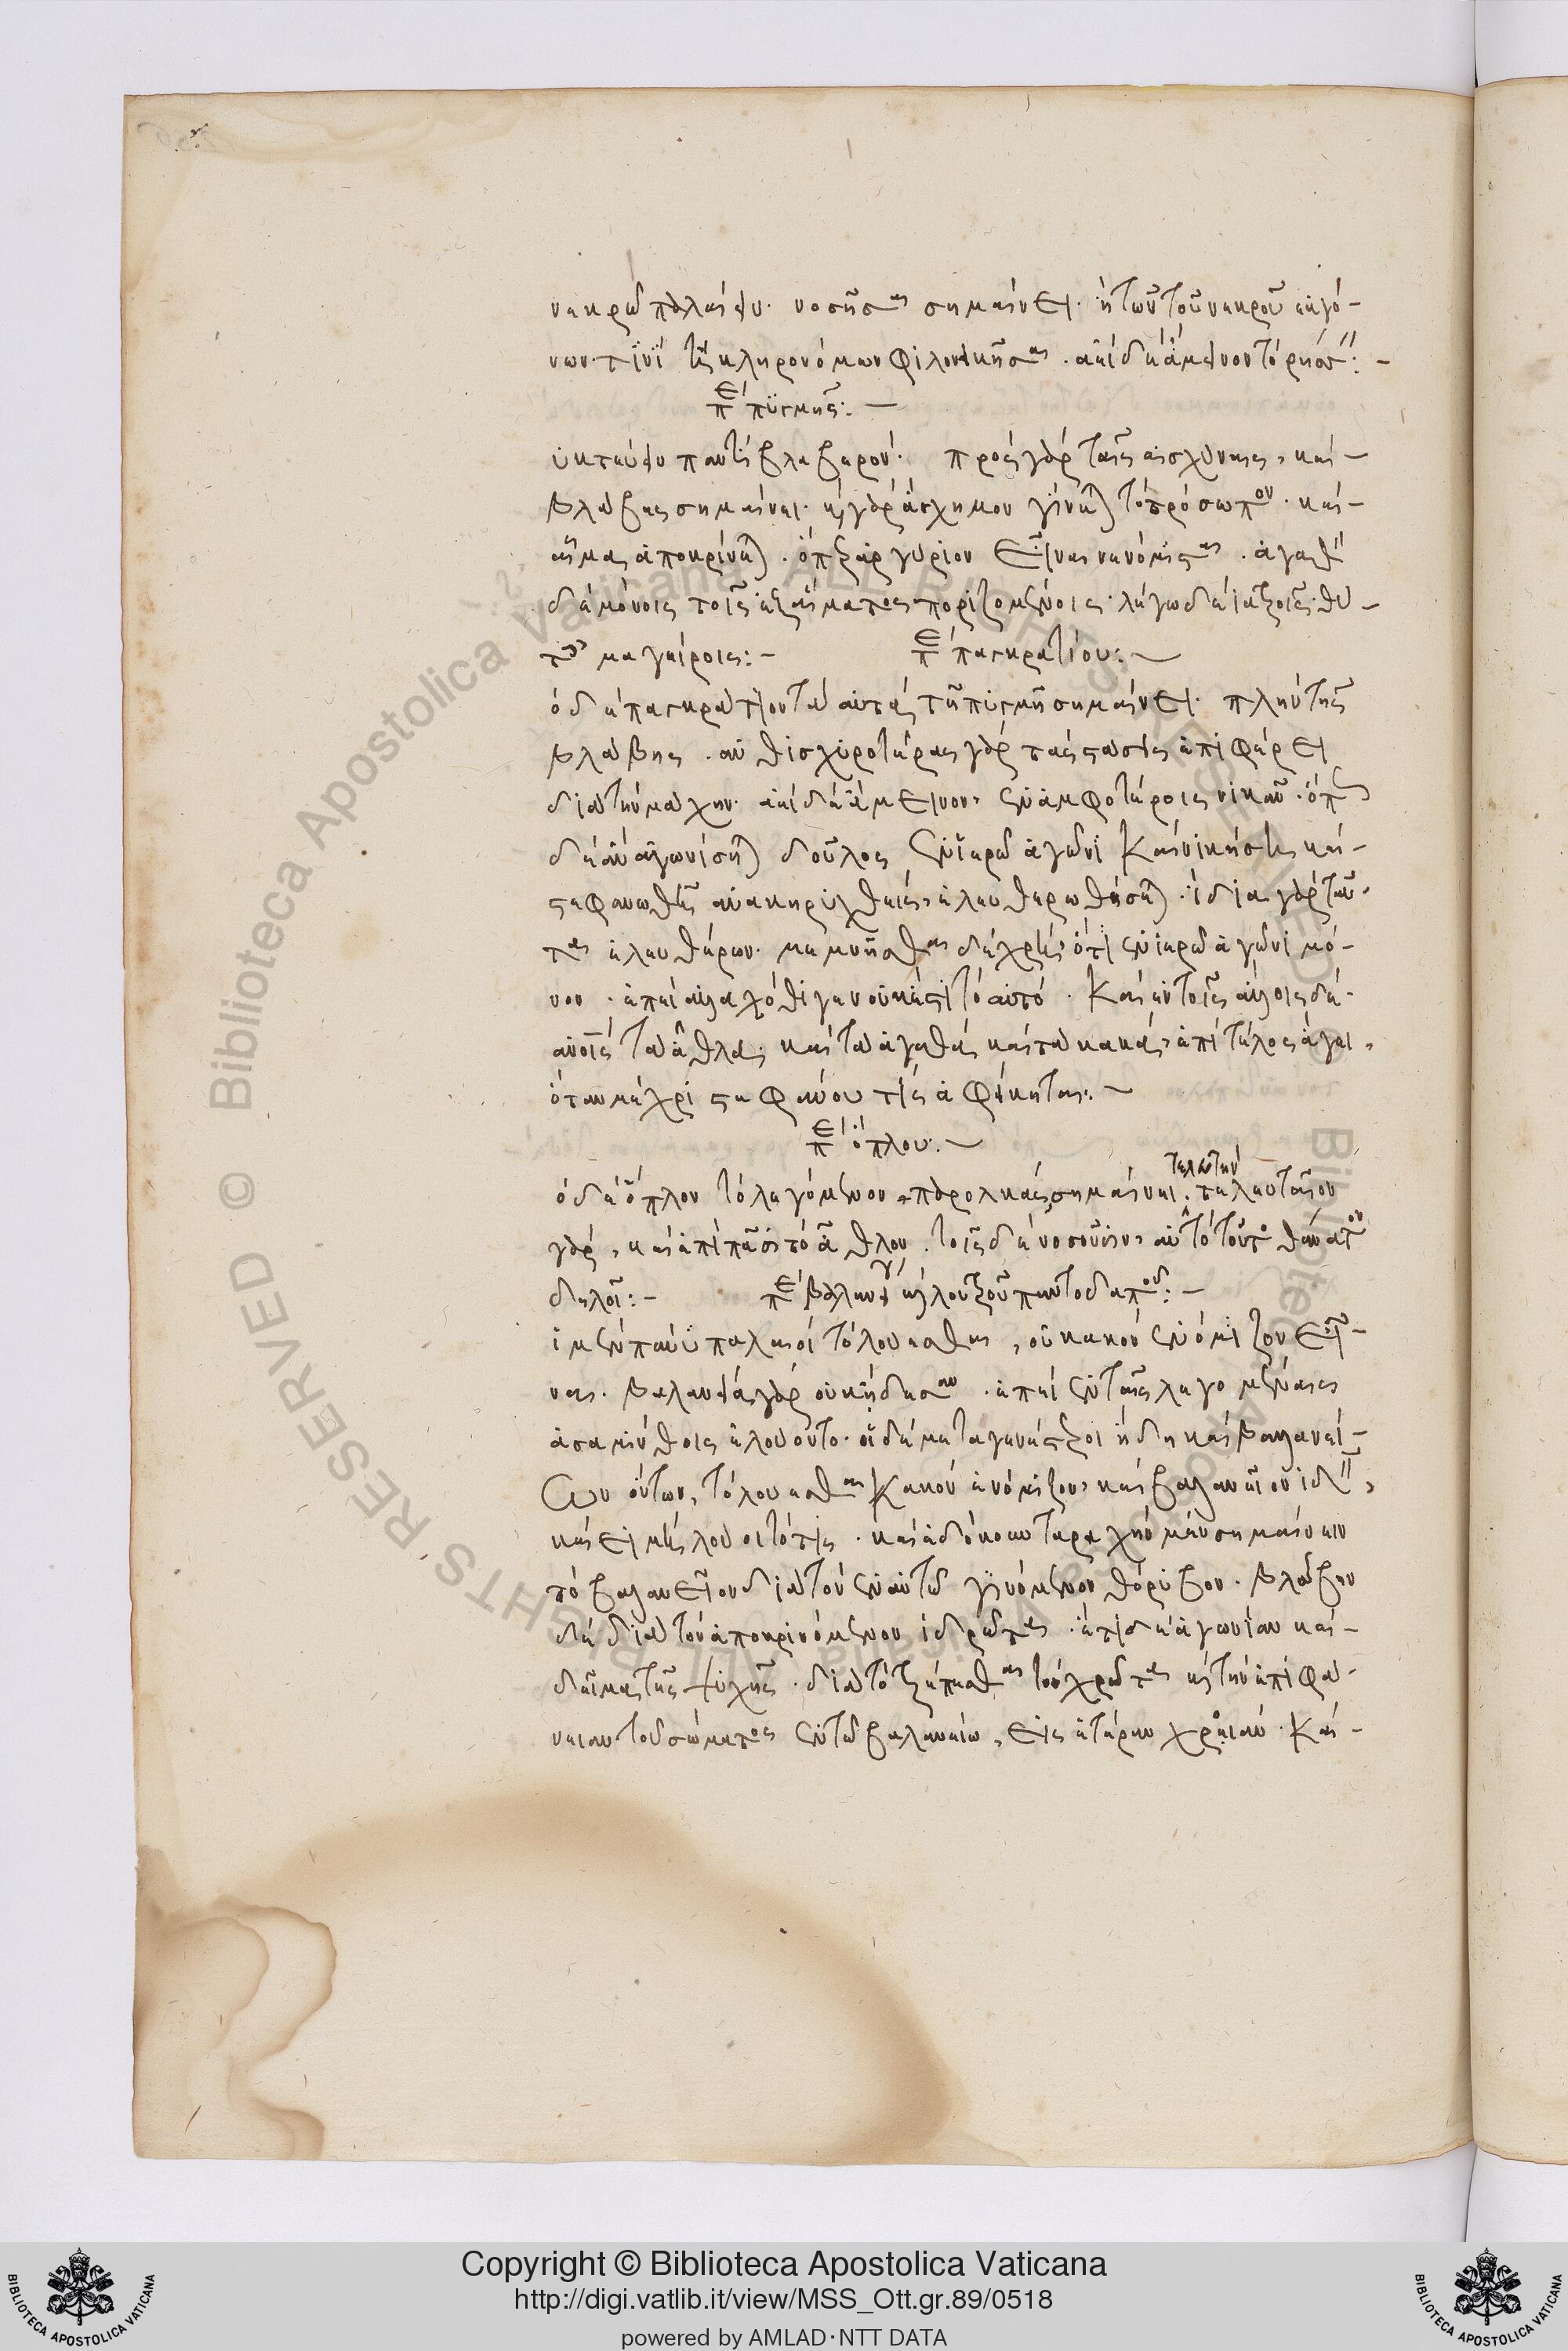 νεκρῷ παλαίειν. νοσῆσαι σημαίνει. ἢ τῶν τοῦ νεκροῦ ἐκγό-
νων τινὶ ἢ κληρονόμων φιλονεικῆσαι. ἀεὶ δὲ ἄμεινον τὸ
Περὶ πυγμῆς:-
πυκτεύειν παντὶ βλαβερόν. πρὸς γὰρ ταῖς αἰσχύναις, καὶ-
βλάβας σημαίνει. καὶ γὰρ ἄσχημον γίνεται τὸ πρόσωπον. καὶ-
αἷμα ἀποκρίνεται. ὅπερ ἀργύριον εἶναι νενόμισται. ἀγαθὸν
δὲ μόνοις τοῖς ἐξ αἵματος ποριζομένοις. λέγω δὲ ἰατροῖς. θύ-
ταις μαγείροις:- Περὶ παγκρατίου:-
ὁ δὲ παγκράτιον τὰ αὐτὰ τῇ πυγμῇ σημαίνει. πλὴν τῆς
βλάβης. ἀν ἰσχυροτέρας γὰρ τὰς στάσεις ἐπιφέρει
διὰ τὴν μάχην. ἀεὶ δὲ ἄμεινον, ἐν ἀμφοτέροις νικᾶν. ὅπερ
δὲ ἂν ἀγωνίσηται δοῦλος ἐν ἱερῷ ἀγῶνι καὶ νικήσει καὶ-
στεφανωθεῖς ἀνακηρυχθεὶς, ἐλευθερωθήσεται. ἴδια γὰρ ταῦ-
τα ἐλευθέρων. μεμνῆσθαι δὲ χρὴ, ὅτι ἐν ἱερῷ ἀγῶνι μό-
νον. ἐπεὶ ἀλλαχόθι γε νουκέστι τὸ αὐτό. καὶ ἐν τοῖς ἄλλοις δὲ-
ἀνοῖς τὰ ἆθλα, καὶ τὰ ἀγαθὰ, καὶ τὰ κακὰ, ἐπὶ τέλος ἄγει,
ὅταν μέχρι στεφάνου τίς ἀφίκηται:-
Περὶ ὅπλου:-
ὁ δὲ ὅπλον τὸ λεγόμενον, παρολκὰς σημαίνει. τελευταῖον
τελευτὴν
γὰρ, καὶ ἐπὶ πᾶσι τὸ ἆθλον. τοῖς δὲ νοσοῦσιν, αὐτὸ τοῦτο θάνατον
δηλοῖ:- Περὶ βαλανείου καὶ λουτροῦ παντοδαποῦ:-
ἱ μὲν πάνυ παλαιοὶ τὸ λούεσθαι, οὐ κακὸν ἐνόμιζον εἶ-
ναι. βαλανεῖα γὰρ οὐκ ᾔδεσαν. ἐπεὶ ἐν ταῖς λεγομέναις
ἀσαμίνθοις ἐλούοντο. οἱ δὲ μεταγενέστεροι ἤδη καὶ βαλανεί-
ων ὄντων, τὸ λούεσθαι κακὸν ἐνόμιζον, καὶ βαλανεῖον ἰδεῖν,
καὶ εἰ μὴ λούοιτό τις. καὶ ἐδόκουν ταραχὴν μὲν σημαίνειν
τὸ βαλανεῖον διὰ τὸν ἐν αὐτῷ γινόμενον θόρυβον. βλάβην
δὲ διὰ τὸν ἀποκρινόμενον ἱδρῶτα. ἔτι δὲ ἀγωνίαν καὶ-
δεῖμα τῆς ψυχῆς. διὰ τὸ τρέπεσθαι τὸν χρῶτα καὶ τὴν ἐπιφά-
νειαν τοῦ σώματος ἐν τῷ βαλανείῳ, εἰς ἑτέραν χροιάν. καὶ-
Copyright © Biblioteca Apostolica Vaticana
http://digi.vatlib.it/view/MSS_Ott.gr.89/0518
powered by AMLAD·NTT DATA
BIBLIOTECA APOSTOLICA VATICANA
BIBLIOTECA APOSTOLICA VATICANA
Biblioteca Apostolica Vaticana ALL RIGHTS RESERVED © Biblioteca Apostolica Vaticana ALL RIGHTS RESERVED ©